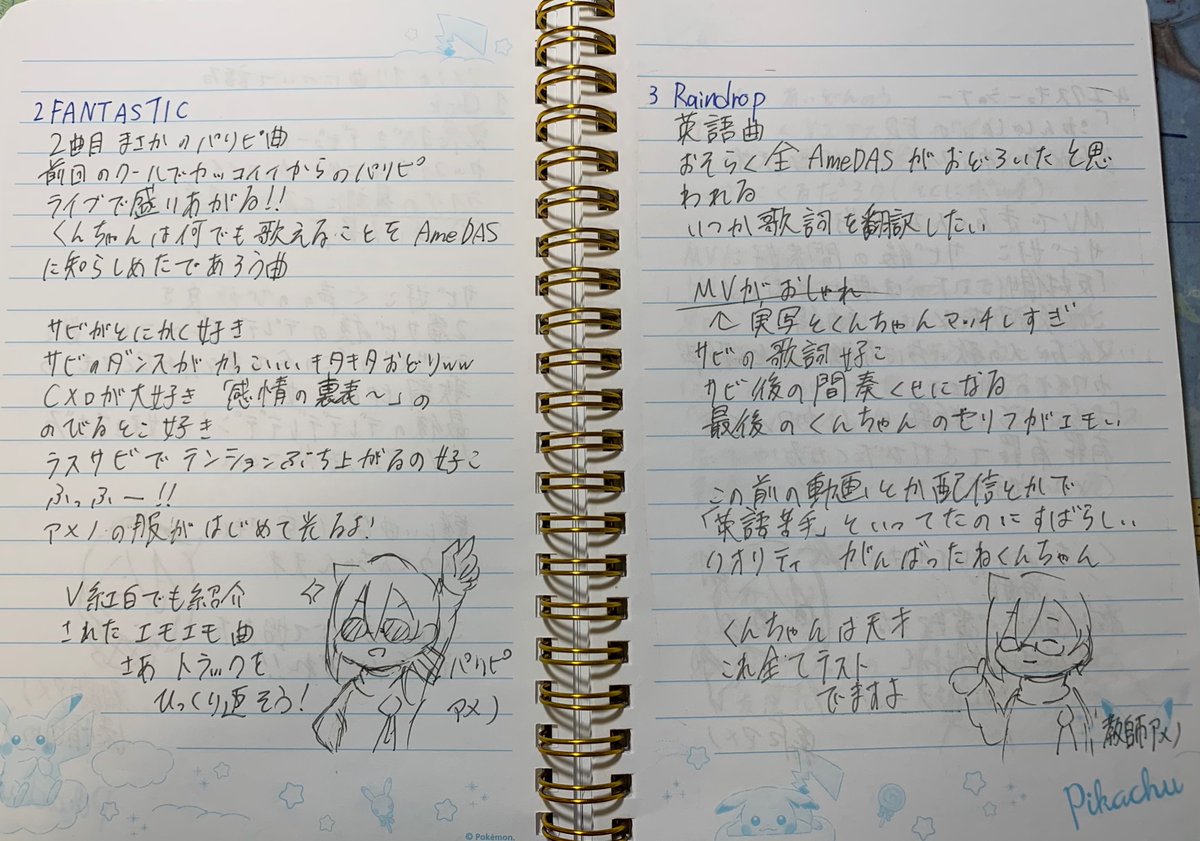 2 FANTASTIC
2曲目 まさかのパリピ曲
前回のクールでカッコイイからのパリピ
ライブで盛りあがる!!
くんちゃんは何でも歌えることを AmeDAS
に知らしめたであろう曲
サビがとにかく好き
サビのダンスがかっこいい キタキタおどりww
Cメロが大好き 「感情の裏表〜」の
のびるとこ好き
ラスサビでテンションぶち上がるの好こ
ふっふー!!
アメノの服がはじめて光るよ!
V紅白でも紹介
された エモエモ曲
さあ トラックを
ひっくり返そう!
パリピ
アメノ
© Pokémon.
3 Raindrop
英語曲
おそらく全 AmeDAS がおどろいたと思
われる
いつか歌詞を翻訳したい
MVがおしゃれ
↑ 実写とくんちゃんマッチしすぎ
サビの歌詞好こ
サビ後の間奏くせになる
最後のくんちゃんのセリフがエモい
この前の動画とか配信とかで
「英語苦手」といってたのにすばらしい
クオリティ がんばったねくんちゃん
くんちゃんは天才
これ全てテスト
でますよ
教師アメノ
Pikachu